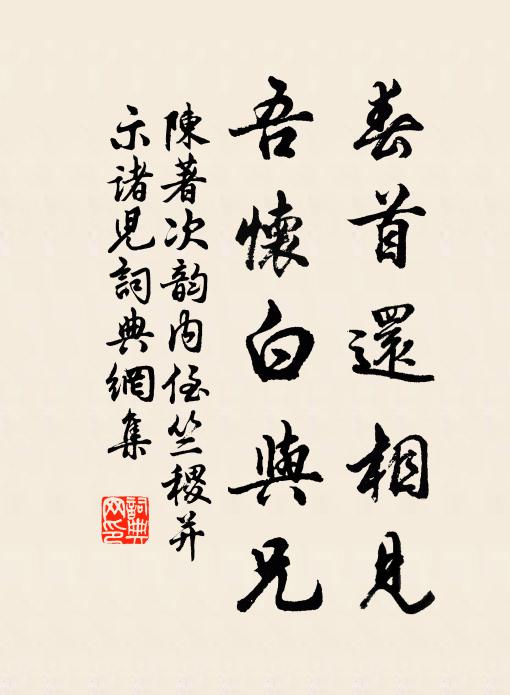 春首還相見
吾懷白與兄
陳著次韵内侄竺稷并
示諸児詞典網集
詞典
网印